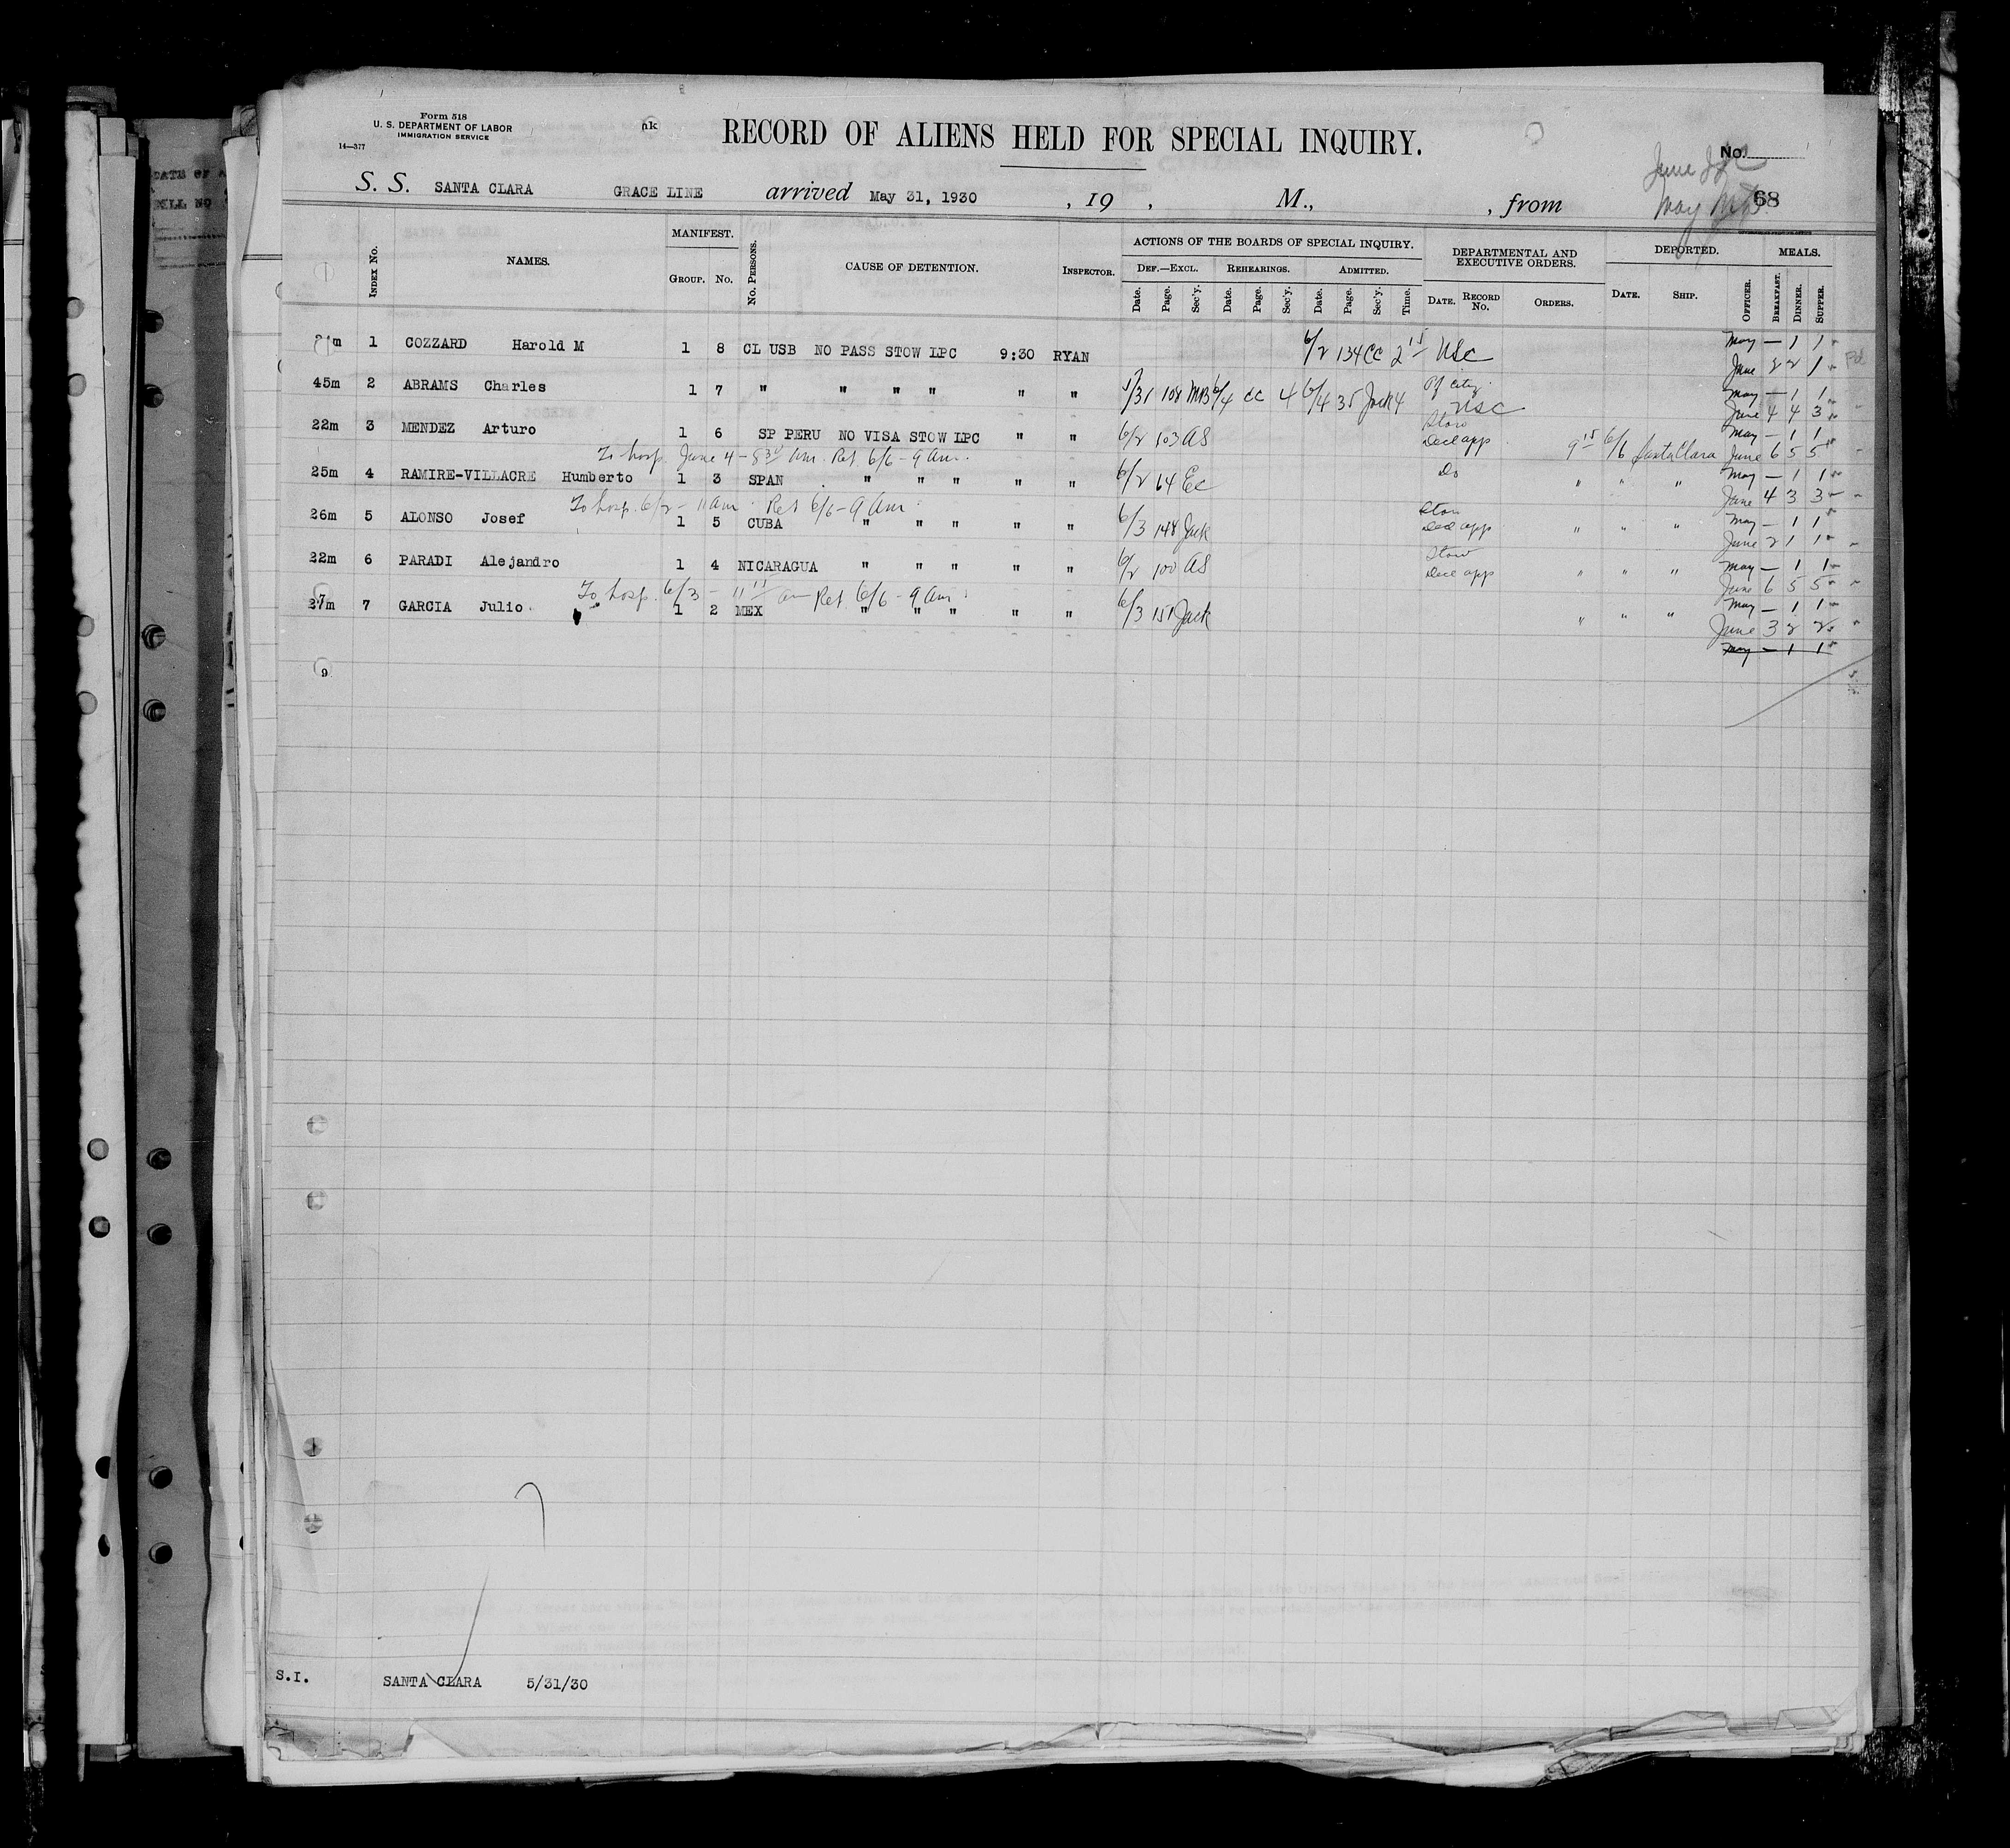 Form 518
U. S. DEPARTMENT OF LABOR
IMMIGRATION SERVICE
14—377
nk
RECORD OF ALIENS HELD FOR SPECIAL INQUIRY.
No.
68
S. S. SANTA CLARA GRACE LINE arrived May 31, 1930 , 19 , M., , from
Index No. NAMES. MANIFEST. Group. No. No. Persons. CAUSE OF DETENTION. Inspector. ACTIONS OF THE BOARDS OF SPECIAL INQUIRY. Def.—Excl. Date. Page. Sec'y. Rehearings. Date. Page. Sec'y. Admitted. Date. Page. Sec'y. Time. DEPARTMENTAL AND EXECUTIVE ORDERS. Date. Record No. Orders. DEPORTED. Date. Ship. Officer. MEALS. Breakfast. Dinner. Supper.
1 COZZARD Harold M 1 8 CL USB NO PASS STOW LPC 9:30 RYAN 6/2 134 CC 2 15 USC May — 1 1
June 2 2 1
45m 2 ABRAMS Charles 1 7 " " " " " " 5/31 108 MB 6/4 CC 4 6/4 35 Jack 4 USC May — 1 1
June 4 4 3
22m 3 MENDEZ Arturo 1 6 SP PERU NO VISA STOW LPC " " 6/2 103 AS Stow Decd app 9 15 6/6 Santa Clara May — 1 1
To hosp. June 4 - 8 30 am. Ret 6/6 - 9 am. June 6 5 5
25m 4 RAMIRE-VILLACRE Humberto 1 3 SPAN " " " " " 6/2 64 EC Do " " " May — 1 1
To hosp. 6/2 - 11 am. Ret 6/6 - 9 am. June 4 3 3
26m 5 ALONSO Josef 1 5 CUBA " " " " " 6/3 148 Jack Stow Decd app " " " May — 1 1
June 2 1 1
22m 6 PARADI Alejandro 1 4 NICARAGUA " " " " " 6/2 100 AS Stow Decd app " " " May — 1 1
To hosp. 6/3 - 11 15 am Ret 6/6 - 9 am. June 6 5 5
27m 7 GARCIA Julio 1 2 MEX " " " " " 6/3 151 Jack " " " May — 1 1
June 3 2 2
May — 1 1
9
S.I. SANTA CLARA 5/31/30